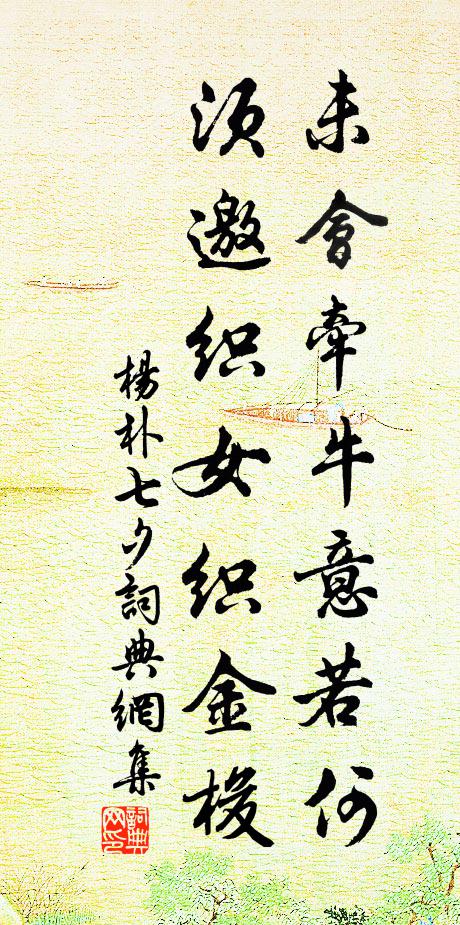 未會牽牛意若何
須邀織女織金梭
楊朴七夕詞典網集
詞典网印